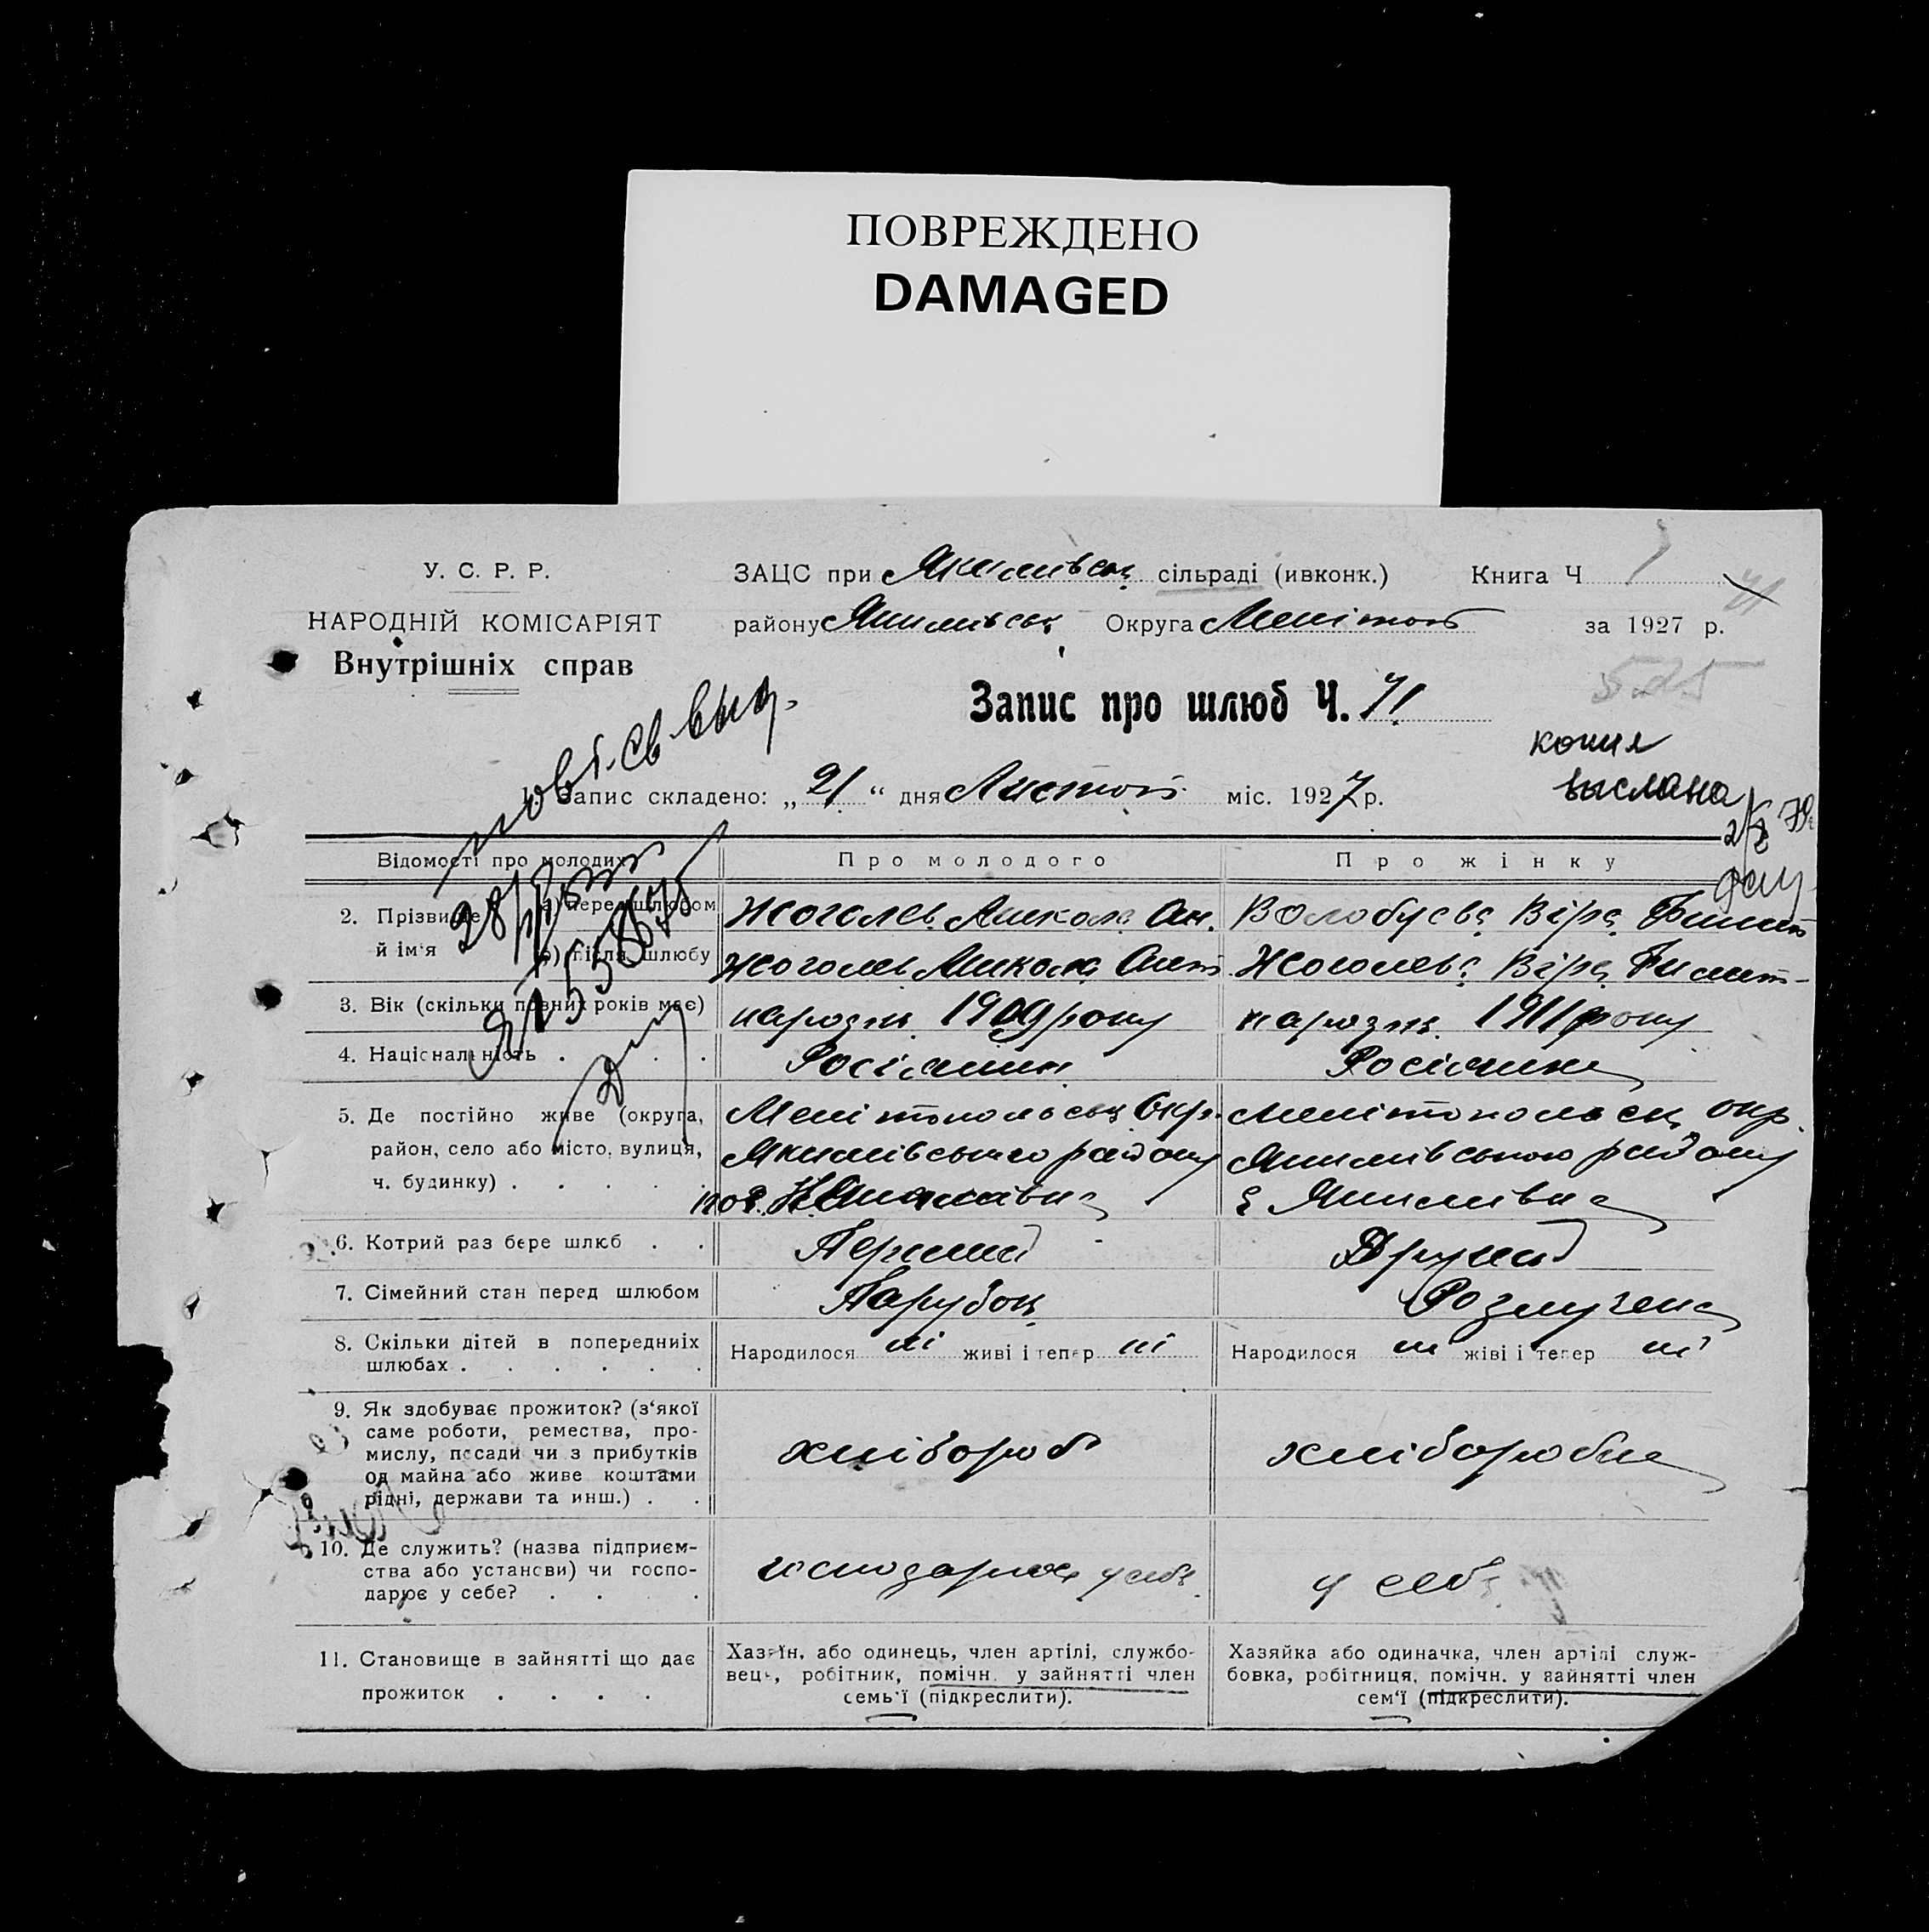 ПОВРЕЖДЕНО
DAMAGED
У. С. Р. Р.
НАРОДНІЙ КОМІСАРІЯТ
Внутрішніх справ
ЗАЦС при Якимівськ сільраді (ивконк.) Книга Ч 1
району Якимівськ Округа Мелітоп за 1927 р.
41
525
Запис про шлюб Ч. 41
копия
выслана
повт. св. выд.
Запис складено: „21“ дня Листоп. міс. 1927 р.
Відомості про молодих
Про молодого
Про жінку
2. Прізвище й ім‘я
а) перед шлюбом
Жоголев Микола Ан.
Волобуєва Віра Филип
б) після шлюбу
Жоголев Микола
Жоголева Віра
3. Вік (скільки повних років має)
народж. 1909 року
народж. 1911 року
4. Національність . . .
Росіянин
Росіянка
5. Де постійно живе (округа,
район, село або місто, вулиця,
ч. будинку) . . . . .
Мелітопольськ Окр.
Якимівського району
Якимівка
Мелітопольськ окр.
Якимівського району
с Якимівка
6. Котрий раз бере шлюб . .
Перший
Другий
7. Сімейний стан перед шлюбом
Парубок
Розлучена
8. Скільки дітей в попередниіх
шлюбах . . . . . .
Народилося ні живі і тепер ні
Народилося ні жіві і тепер ні
9. Як здобуває прожиток? (з‘якої
саме роботи, ремества, про-
мислу, посади чи з прибутків
од майна або живе коштами
рідні, держави та инш.) . .
хлібороб
хліборобка
10. Де служить? (назва підприєм-
ства або установи) чи госпо-
дарює у себе? . . .
господарює у себе
у себе
11. Становище в зайнятті що дає
прожиток . . . .
Хазяїн, або одинець, член артілі, службо-
вець, робітник, помічн. у зайнятті член
семь‘ї (підкреслити).
Хазяйка або одиначка, член артілі служ-
бовка, робітниця, помічн. у зайнятті член
сем‘ї (підкреслити).